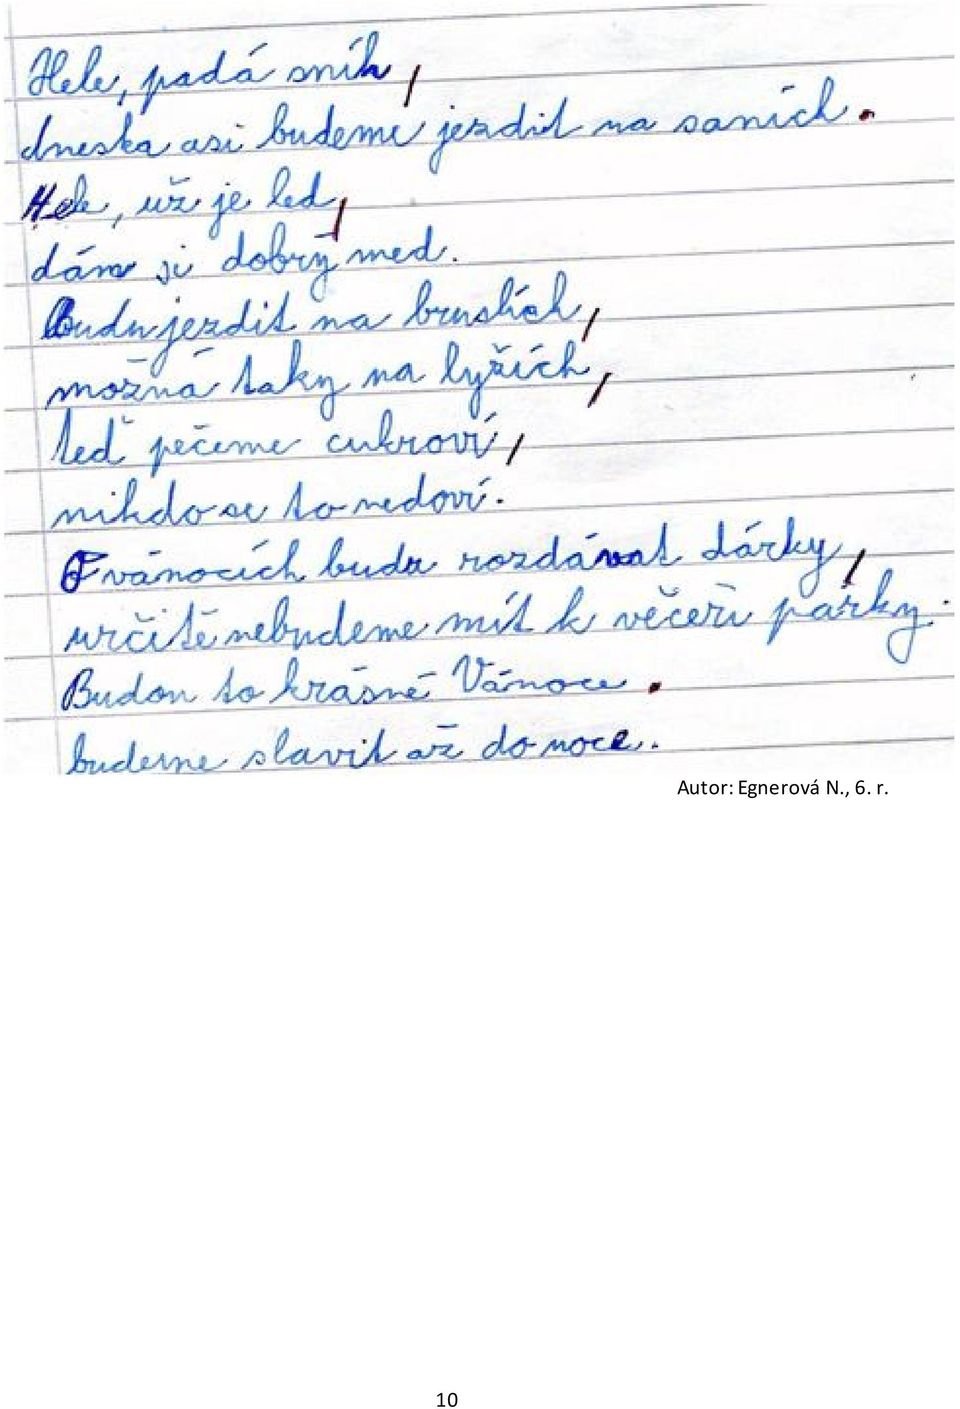 Hele, padá sníh,
dneska asi budeme jezdit na saních.
Hele, už je led,
dám si dobrý med.
Budu jezdit na bruslích,
možná taky na lyžích,
teď pečeme cukroví,
nikdo se to nedoví.
O vánocích budu rozdávat dárky,
určitě nebudeme mít k věčeři párky.
Budou to krásné Vánoce.
budeme slavit až do noce.
Autor: Egnerová N., 6. r.
10